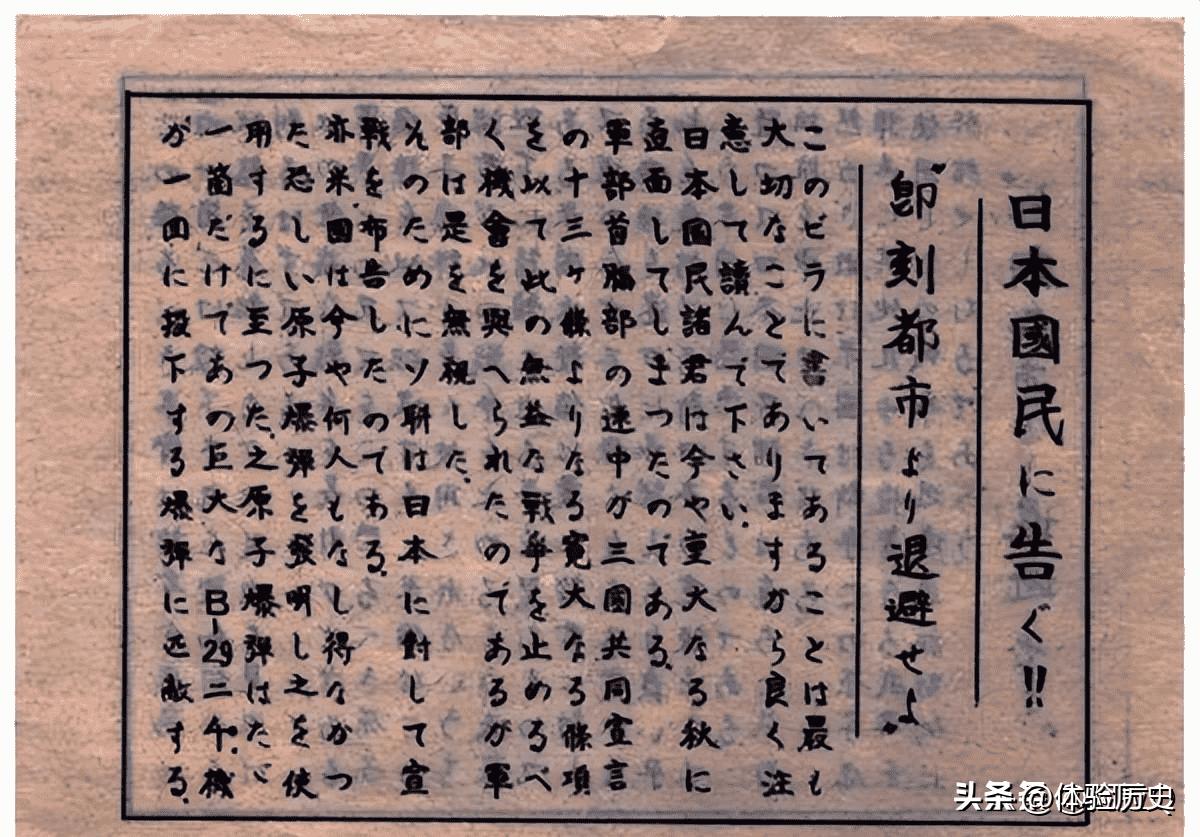 日本國民に告ぐ!!
"即刻都市より退避せよ"
このビラに書いてあることは最も
大切なことでありますから良く注
意して讀んで下さい。
日本國民諸君は今や重大なる秋に
直面してしまつたのである。
軍部首脳部の連中が三國共同宣言
の十三ヶ條よりなる寛大なる條項
を以て此の無益な戦争を止めるべ
く機會を與へられたのであるが軍
部は是を無視した。
そのためにソ聨は日本に對して宣
戦を布告したのである。
亦米國は今や何人もなし得なかつ
た恐しい原子爆弾を發明し之を使
用するに至つた。之原子爆弾はたゞ
一箇だけであの巨大なB-29二千機
が一回に投下する爆弾に匹敵する。
头条 @体验历史